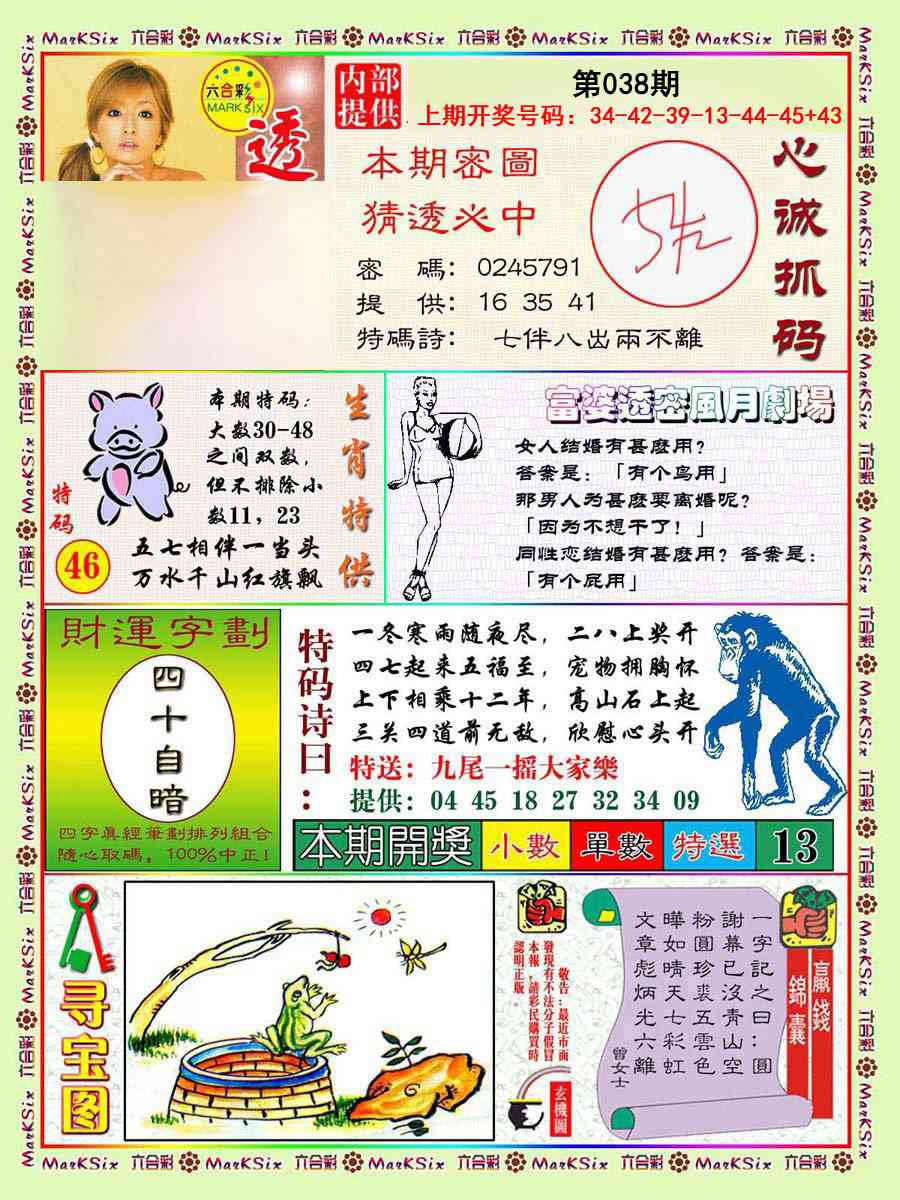 MarKSix 六合彩 MarKSix 六合彩 MarKSix 六合彩 MarKSix 六合彩 MarKSix 六合彩
六合彩
MARK SIX
透
内部
提供
第038期
上期开奖号码：34-42-39-13-44-45+43
本期密圖
猜透必中
密　碼：0245791
提　供：16 35 41
特碼詩：　七伴八出兩不離
心诚抓码
特码
46
本期特码：
大数30-48
之间双数，
但不排除小
数11，23
五七相伴一当头
万水千山红旗飘
生肖特供
富婆透密風月劇場
女人结婚有甚麽用？
答案是：「有个鸟用」
那男人为甚麽要离婚呢？
「因为不想干了！」
同性恋结婚有甚麽用？答案是：
「有个屁用」
財運字劃
四十自暗
四字眞經筆劃排列組合
隨心取碼，100%中正！
特码诗曰：
一冬寒雨随夜尽，二八上奖开
四七起来五福至，宠物拥胸怀
上下相乘十二年，高山石上起
三关四道前无敌，欣慰心头开
特送：九尾一摇大家樂
提供：04 45 18 27 32 34 09
本期開獎 小數 單數 特選 13
寻宝图
敬告：最近市面
發現有不法分子假冒
本報，請彩民購買時
認明正版。
玄機圖
一字記之曰：圓
謝幕已沒青山空
粉圓珍裘五雲色
曄如晴天七彩虹
文章彪炳光六離
曾女士
贏錢
錦囊
MarKSix 六合彩 MarKSix 六合彩 MarKSix 六合彩 MarKSix 六合彩 MarKSix 六合彩